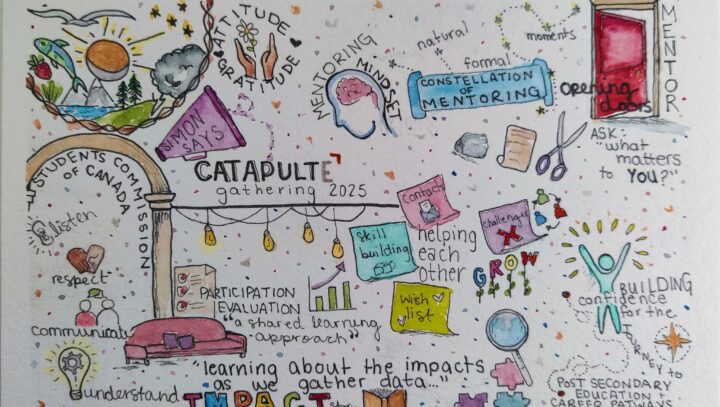 ATTITUDE
GRATITUDE
MENTORING
MINDSET
natural
formal
moments
CONSTELLATION
OF
MENTORING
MENTOR
opening
doors
SIMON
SAYS
ASK:
"what
matters
to YOU?"
STUDENTS COMMISSION
OF CANADA
CATAPULTE
gathering 2025
listen
respect
communicate
understand
Contacts
Skill
building
challenges
helping
each
other
GROW
Wish
list
PARTICIPATION
EVALUATION
"a shared learning
approach"
BUILDING
confidence
for the
JOURNEY TO
POST SECONDARY
EDUCATION +
CAREER PATHWAYS
"learning about the impacts
as we gather data..."
IMPACT